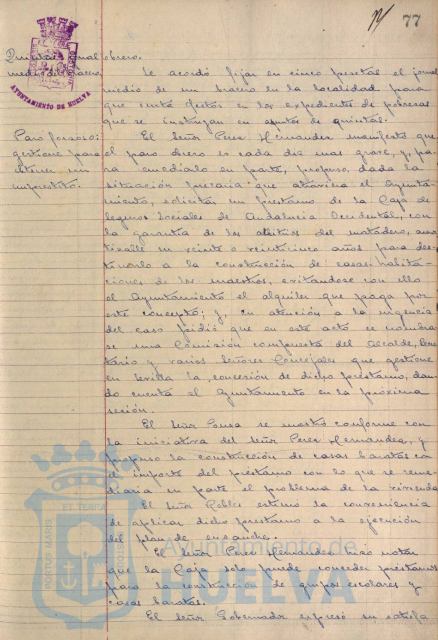 77
AYUNTAMIENTO DE HUELVA
Quintas: jornal
medio del bracero.
Paro forzoso:
gestione para
obtener un
empréstito.
obrero.
Se acordó fijar en cinco pesetas el jornal
medio de un bracero en la localidad para
que surta efectos en los expedientes de pobreza
que se instruyan en asuntos de quintas.
El Señor Perez Hernandez manifestó que
el paro obrero es cada dia mas grave, y, pa-
ra remediarlo en parte, propuso, dada la
situación precaria que atraviesa el Ayunta-
miento, solicitar un préstamo de la Caja de
Seguros Sociales de Andalucia Occidental, con
la garantia de los arbitrios del matadero, amor-
tizable en veinte o veinticinco años para des-
tinarlo a la construcción de casas habita-
ciones de los maestros, evitandose con ello
el Ayuntamiento el alquiler que paga por
este concepto; y, en atención a la urgencia
del caso pidió que en este acto se nombra-
se una Comisión compuesta del Alcalde, Secre-
tario y varios Señores Concejales que gestione
en Sevilla la concesión de dicho préstamo, dan-
do cuenta al Ayuntamiento en la próxima
sesión.
El Señor Sousa se mostró conforme con
la iniciativa del Señor Perez Hernandez, y
propuso la construcción de casas baratas con
el importe del préstamo con lo que se reme-
diaria en parte el problema de la vivienda.
El Señor Robles estimó la conveniencia
de aplicar dicho préstamo a la ejecución
del plan de ensanche.
El Señor Perez Hernandez hizo notar
que la Caja solo puede conceder préstamos
para la construcción de grupos escolares y
casas baratas.
El Señor Gobernador expresó su satisfa
PORTUS MARIS
ET TERRÆ
CUSTODIA
Ayuntamiento de
HUELVA